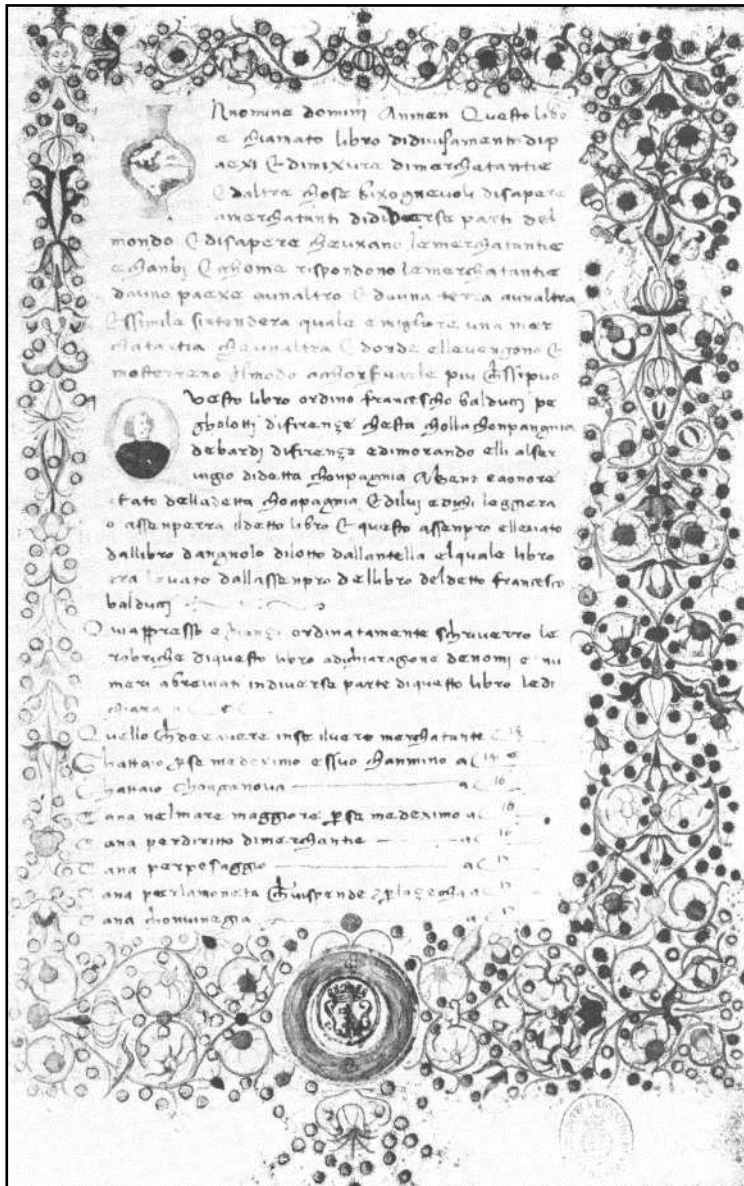 Nnomine domini Ammen Questo libro
e chiamato libro didivisamenti dip
aexi Et dimixure dimerchatantie
Et daltre chose bixognevoli disapere
amerchatanti didiverse parti del
mondo Et disapere cheuxano lemerchatantie
e chanbi Et chome rispondono lemerchatantie
dauno paexe aunaltro Et dauna terra aunaltra
Essimile sintendera quale e migliore una mer
chatantia cheunaltra Et donde ellevengono Et
mosterreno ilmodo achonservarle piu chessipuo
Uesto libro ordino francescho balducci pe
gholotti difirenze chesta cholla chonpangnia
debardi difirenze edimorando elli alser
vigio didetta chonpagnia Abene eaonore
estato delladetta chonpagnia Et dilui edichi leggiera
o assenperra ildetto libro Et questo assenpro ellevato
dallibro dangnolo dilotto dallantella elquale libro
era levato dallassenpro dellibro deldetto francesco
balducci
Quiappresso e inanzi ordinatamente schriverro le
robriche diquesto libro adichiaragone denomi e nu
meri abreviati indiverse parte diquesto libro ledi
chiara
Quello che deavere inse iluero merchatante
Ghattaio per se medeximo essuo chanmino a c 14
Ghattaio changanova a c 16
Tana nelmare maggiore per se medeximo a c 16
Tana perdiritto dimerchantie a c 16
Tana perpesaggio a c 17
Tana perlamoneta che vispende per lazecha a c 17
Tana chonvinegia a c 17